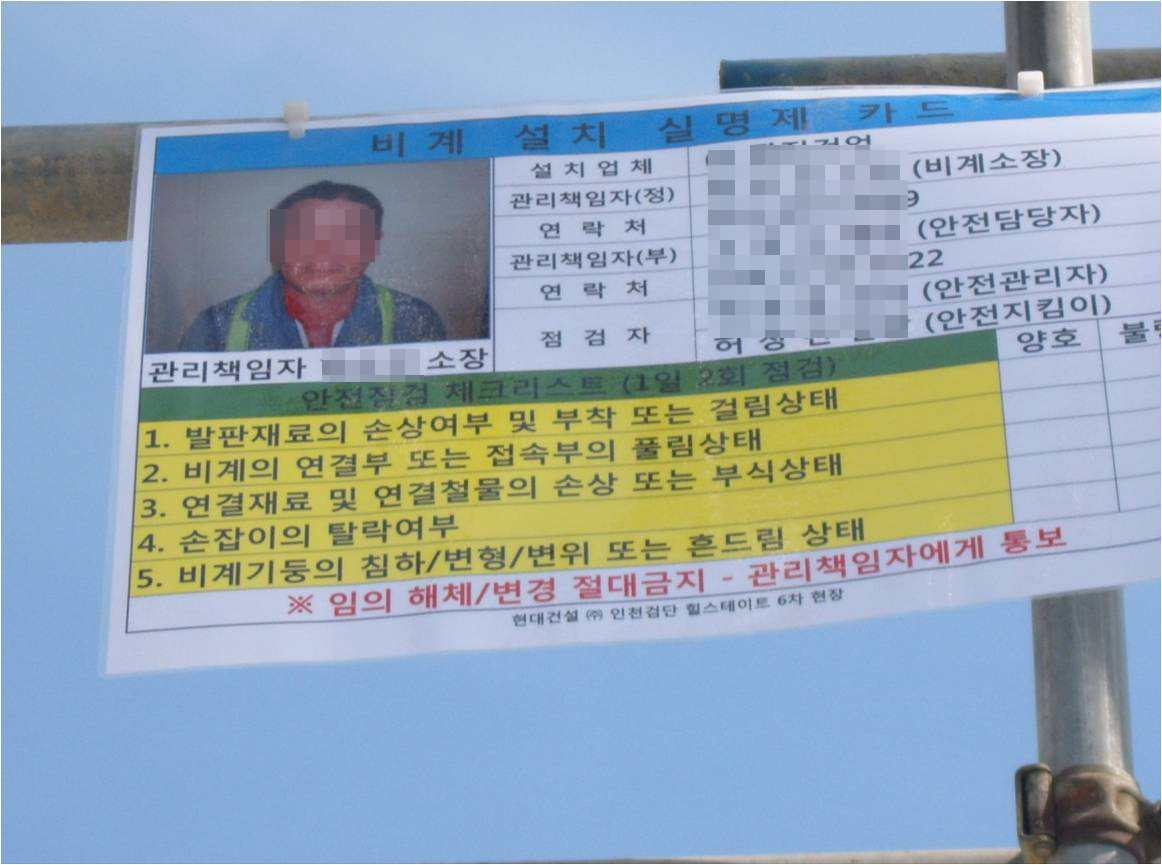 비계 설치 실명제 카드
설치업체
관리책임자(정) (비계소장)
연락처 9
관리책임자(부) (안전담당자)
연락처 22
점검자 (안전관리자)
(안전지킴이)
관리책임자 소장
안전점검 체크리스트 (1일 2회 점검) 양호
1. 발판재료의 손상여부 및 부착 또는 걸림상태
2. 비계의 연결부 또는 접속부의 풀림상태
3. 연결재료 및 연결철물의 손상 또는 부식상태
4. 손잡이의 탈락여부
5. 비계기둥의 침하/변형/변위 또는 흔드림 상태
※ 임의 해체/변경 절대금지 - 관리책임자에게 통보
현대건설 ㈜ 인천검단 힐스테이트 6차 현장